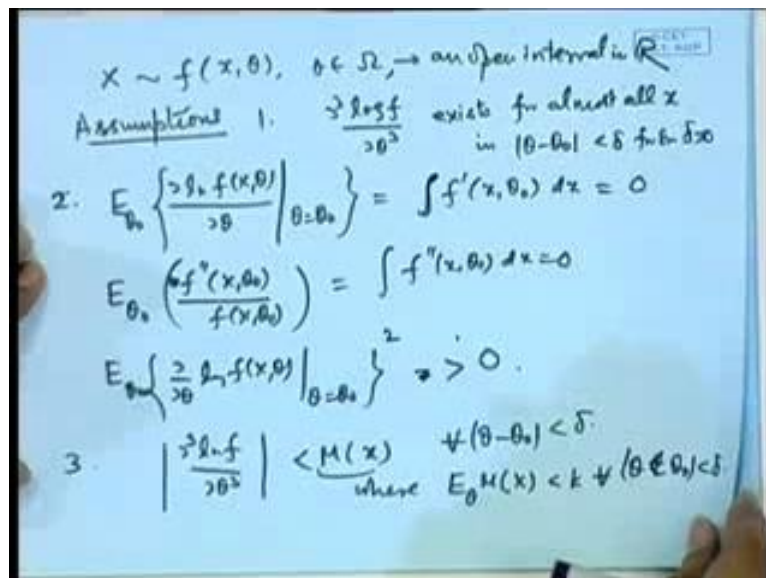 X ~ f(x,θ), θ ∈ Ω, → an open interval in R
Assumptions 1. ∂³ log f / ∂θ³ exists for almost all x
in |θ-θ₀| < δ for δ>0
2. E_θ₀ { ∂ ln f(x,θ) / ∂θ |_θ=θ₀ } = ∫ f'(x,θ₀) dx = 0
E_θ₀ ( f''(x,θ₀) / f(x,θ₀) ) = ∫ f''(x,θ₀) dx = 0
E { ∂/∂θ ln f(x,θ) |_θ=θ₀ }² > 0.
3. | ∂³ ln f / ∂θ³ | < M(x) ∀ |θ-θ₀| < δ.
where E_θ M(x) < k ∀ |θ-θ₀| < δ